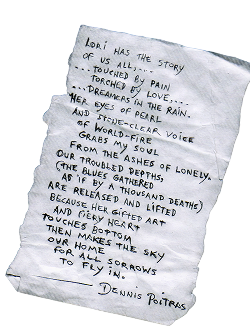 LORI HAS THE STORY
OF US ALL,...
...TOUCHED BY PAIN
TORCHED BY LOVE,...
...DREAMERS IN THE RAIN.
HER EYES OF PEARL
AND STONE-CLEAR VOICE
OF WORLD-FIRE
GRABS MY SOUL
FROM THE ASHES OF LONELY.
OUR TROUBLED DEPTHS,
(THE BLUES GATHERED
AS IF BY A THOUSAND DEATHS)
ARE RELEASED AND LIFTED
BECAUSE HER GIFTED ART
AND FIERY HEART
TOUCHES BOTTOM
THEN MAKES THE SKY
OUR HOME
FOR ALL SORROWS
TO FLY IN.
DENNIS POITRAS